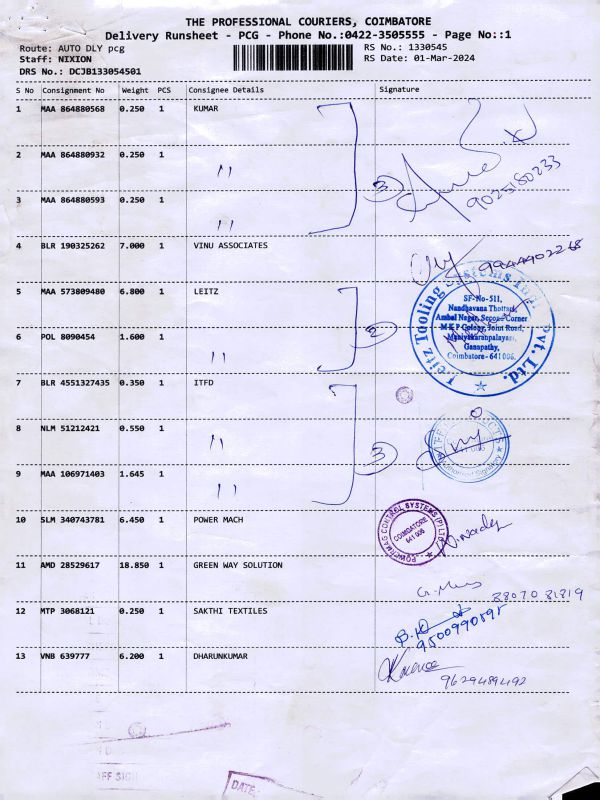 THE PROFESSIONAL COURIERS, COIMBATORE
Delivery Runsheet - PCG - Phone No.:0422-3505555 - Page No::1
Route: AUTO DLY pcg RS No.: 1330545
Staff: NIXION RS Date: 01-Mar-2024
DRS No.: DCJB133054501
S No Consignment No Weight PCS Consignee Details Signature
1 MAA 864880568 0.250 1 KUMAR
2 MAA 864880932 0.250 1 "
3 9025180233
3 MAA 864880593 0.250 1 "
4 BLR 190325262 7.000 1 VINU ASSOCIATES 9944902268
5 MAA 573809480 6.800 1 LEITZ
Leitz Tooling Systems India Pvt. Ltd.
SF-No-511,
Nandhavana Thottam,
Ambal Nagar, Corner
M K P Colony, Joint Road,
Maniyakarahpalayam,
Ganapathy,
Coimbatore - 641 006.
6 POL 8090454 1.600 1 "
2
7 BLR 4551327435 0.350 1 ITFD
8 NLM 51212421 0.550 1 "
3
9 MAA 106971403 1.645 1 "
10 SLM 340743781 6.450 1 POWER MACH
POWERMAG CONTROL SYSTEMS (P) LTD
COIMBATORE
641 006
11 AMD 28529617 18.850 1 GREEN WAY SOLUTION
88070 81819
12 MTP 3068121 0.250 1 SAKTHI TEXTILES
9500990595
13 VNB 639777 6.200 1 DHARUNKUMAR
9629489492
DATE: